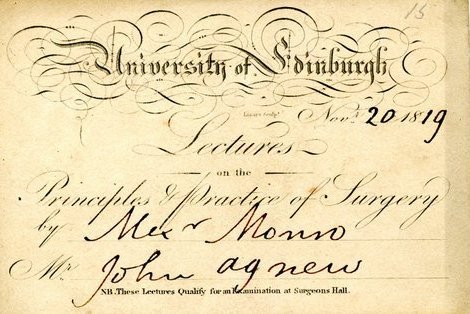 15
University of Edinburgh
Lizars Sculpt
Novr. 20 1819
Lectures
on the
Principles & Practice of Surgery
by Alexr Monro
Mr. John Agnew
NB. These Lectures Qualify for an Examination at Surgeons Hall.